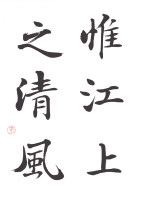 惟江上
之清風